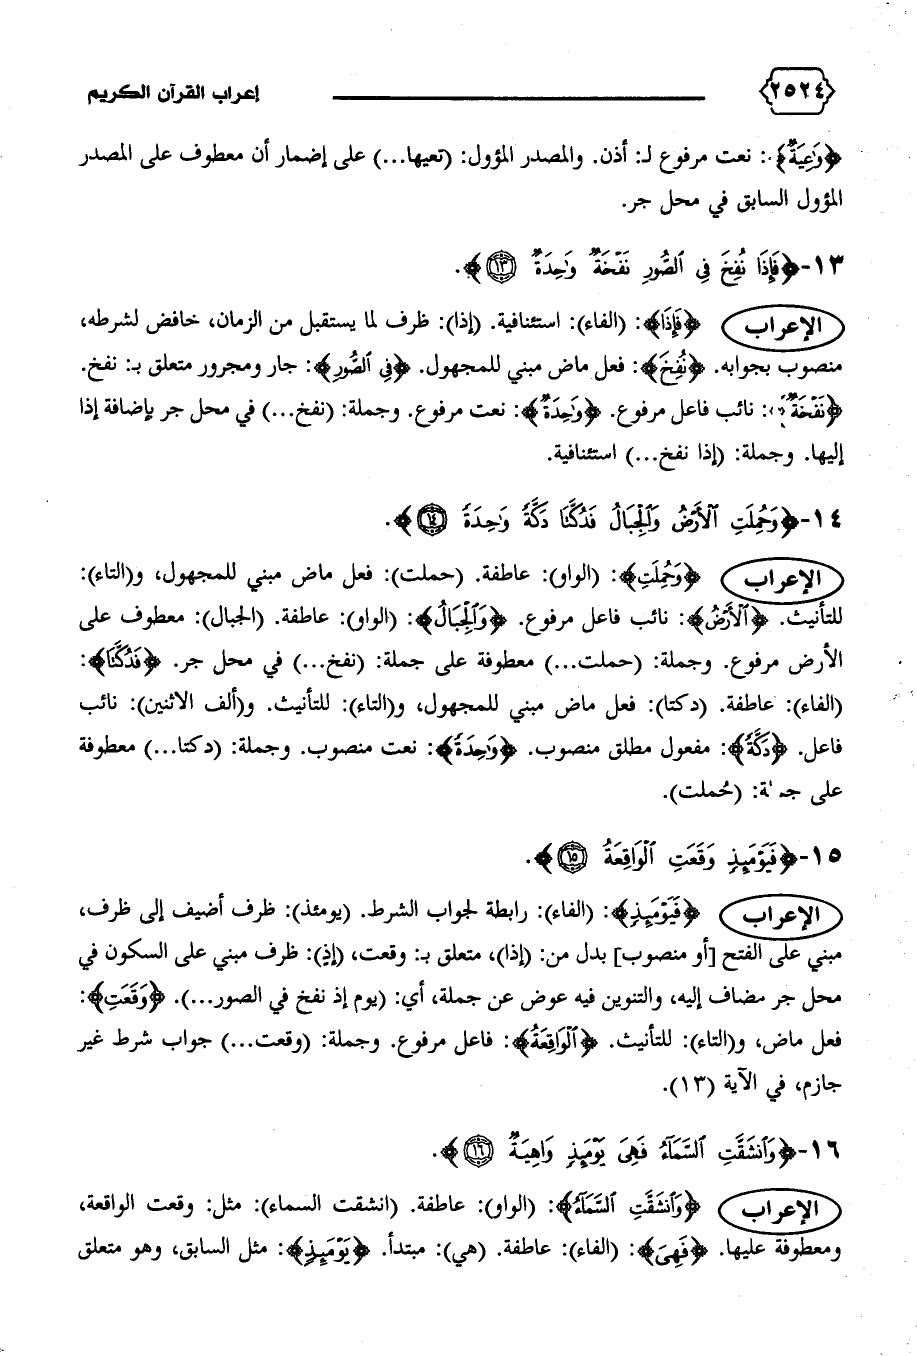 ٢٥٢٤ إعراب القرآن الكريم
﴿وَٰعِيَةٌ﴾: نعت مرفوع لـ: أذن. والمصدر المؤول: (تعيها...) على إضمار أن معطوف على المصدر
المؤول السابق في محل جر.
١٣-﴿فَإِذَا نُفِخَ فِى ٱلصُّورِ نَفْخَةٌ وَٰحِدَةٌ ١٣﴾.
الإعراب ﴿فَإِذَا﴾: (الفاء): استئنافية. (إذا): ظرف لما يستقبل من الزمان، خافض لشرطه،
منصوب بجوابه. ﴿نُفِخَ﴾: فعل ماض مبني للمجهول. ﴿فِى ٱلصُّورِ﴾: جار ومجرور متعلق بـ: نفخ.
﴿نَفْخَةٌ﴾: نائب فاعل مرفوع. ﴿وَٰحِدَةٌ﴾: نعت مرفوع. وجملة: (نفخ...) في محل جر بإضافة إذا
إليها. وجملة: (إذا نفخ...) استئنافية.
١٤-﴿وَحُمِلَتِ ٱلْأَرْضُ وَٱلْجِبَالُ فَدُكَّتَا دَكَّةً وَٰحِدَةً ١٤﴾.
الإعراب ﴿وَحُمِلَتِ﴾: (الواو): عاطفة. (حملت): فعل ماض مبني للمجهول، و(التاء):
للتأنيث. ﴿ٱلْأَرْضُ﴾: نائب فاعل مرفوع. ﴿وَٱلْجِبَالُ﴾: (الواو): عاطفة. (الجبال): معطوف على
الأرض مرفوع. وجملة: (حملت...) معطوفة على جملة: (نفخ...) في محل جر. ﴿فَدُكَّتَا﴾:
(الفاء): عاطفة. (دكتا): فعل ماض مبني للمجهول، و(التاء): للتأنيث. و(ألف الاثنين): نائب
فاعل. ﴿دَكَّةً﴾: مفعول مطلق منصوب. ﴿وَٰحِدَةً﴾: نعت منصوب. وجملة: (دكتا...) معطوفة
على جملة: (حُملت).
١٥-﴿فَيَوْمَئِذٍ وَقَعَتِ ٱلْوَاقِعَةُ ١٥﴾.
الإعراب ﴿فَيَوْمَئِذٍ﴾: (الفاء): رابطة لجواب الشرط. (يومئذ): ظرف أضيف إلى ظرف،
مبني على الفتح [أو منصوب] بدل من: (إذا)، متعلق بـ: وقعت، (إذٍ): ظرف مبني على السكون في
محل جر مضاف إليه، والتنوين فيه عوض عن جملة، أي: (يوم إذ نفخ في الصور...). ﴿وَقَعَتِ﴾:
فعل ماض، و(التاء): للتأنيث. ﴿ٱلْوَاقِعَةُ﴾: فاعل مرفوع. وجملة: (وقعت...) جواب شرط غير
جازم، في الآية (١٣).
١٦-﴿وَٱنشَقَّتِ ٱلسَّمَآءُ فَهِىَ يَوْمَئِذٍ وَاهِيَةٌ ١٦﴾.
الإعراب ﴿وَٱنشَقَّتِ ٱلسَّمَآءُ﴾: (الواو): عاطفة. (انشقت السماء): مثل: وقعت الواقعة،
ومعطوفة عليها. ﴿فَهِىَ﴾: (الفاء): عاطفة. (هي): مبتدأ. ﴿يَوْمَئِذٍ﴾: مثل السابق، وهو متعلق